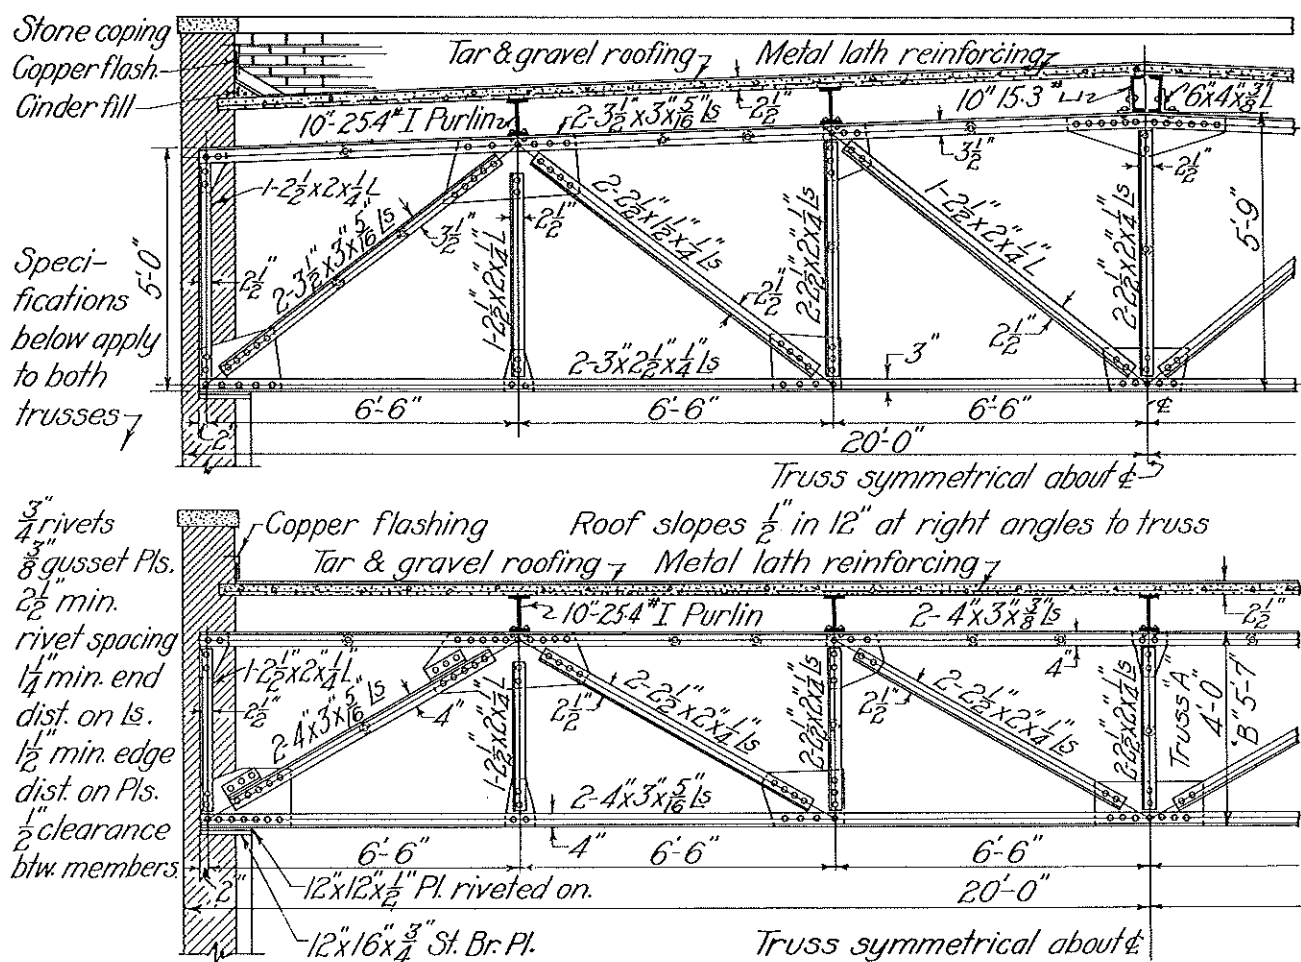 Stone coping
Copper flash.
Cinder fill
Tar & gravel roofing
Metal lath reinforcing
10"-25.4# I Purlin
2-3½"x3"x5/16" Ls
2½"
10" 15.3#
6"x4"x3/8" L
3½"
2½"
1-2½"x2"x¼" L
2-3½"x3"x5/16" Ls
3½"
1-2½"x2"x¼" L
2½"
2-2½"x1½"x¼" Ls
2½"
2-2½"x2"x¼" Ls
1-2½"x2"x¼" L
2½"
2-2½"x2"x¼" Ls
5'-9"
5'-0"
2½"
Speci-
fications
below apply
to both
trusses
2-3"x2½"x¼" Ls
3"
6'-6"
6'-6"
6'-6"
℄
2"
20'-0"
Truss symmetrical about ℄
¾" rivets
3/8" gusset Pls.
2½" min.
rivet spacing
1¼" min. end
dist. on Ls.
1½" min. edge
dist. on Pls.
½" clearance
btw. members
Copper flashing
Roof slopes ½" in 12" at right angles to truss
Tar & gravel roofing
Metal lath reinforcing
10"-25.4# I Purlin
2-4"x3"x3/8" Ls
2½"
4"
1-2½"x2"x¼" L
2½"
2-4"x3"x5/16" Ls
4"
1-2½"x2"x¼" L
2½"
2-2½"x2"x¼" Ls
2-2½"x2"x¼" Ls
2½"
2-2½"x2"x¼" Ls
2-2½"x2"x¼" Ls
Truss "A"
4'-0"
"B" 5'-7"
2-4"x3"x5/16" Ls
4"
6'-6"
6'-6"
6'-6"
2"
12"x12"x½" Pl. riveted on.
20'-0"
12"x16"x¾" St. Br. Pl.
Truss symmetrical about ℄